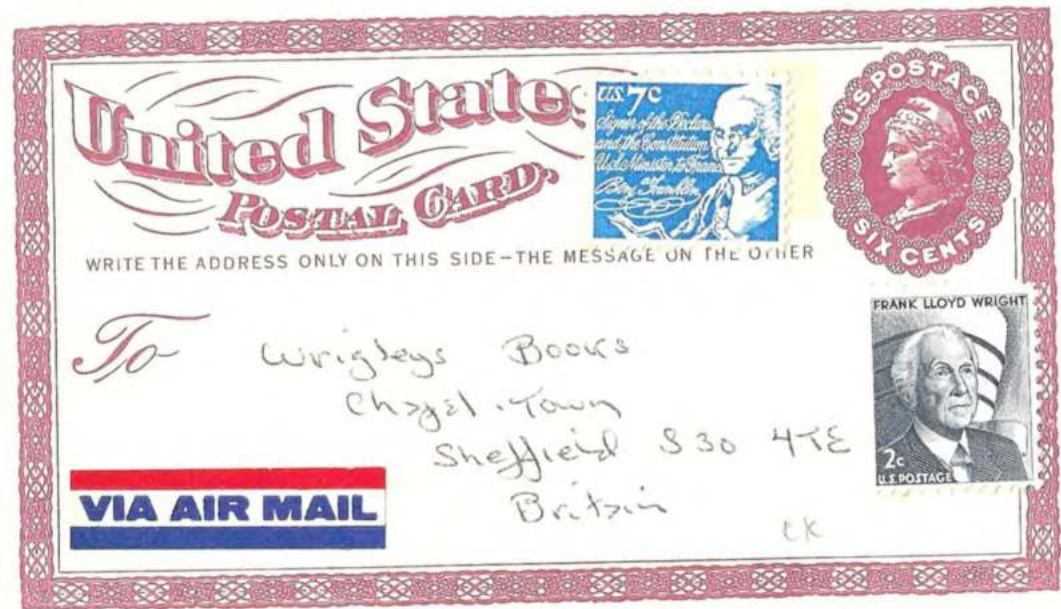 United States
POSTAL CARD.
U.S. 7c
Signer of the Declara
and the Constitution
U.S. Minister to France
Benj Franklin
U.S. POSTAGE
SIX CENTS
WRITE THE ADDRESS ONLY ON THIS SIDE–THE MESSAGE ON THE OTHER
FRANK LLOYD WRIGHT
2c
U.S. POSTAGE
To
Wrigleys Books
Chapel Town
Sheffield S30 4TE
Britain
VIA AIR MAIL